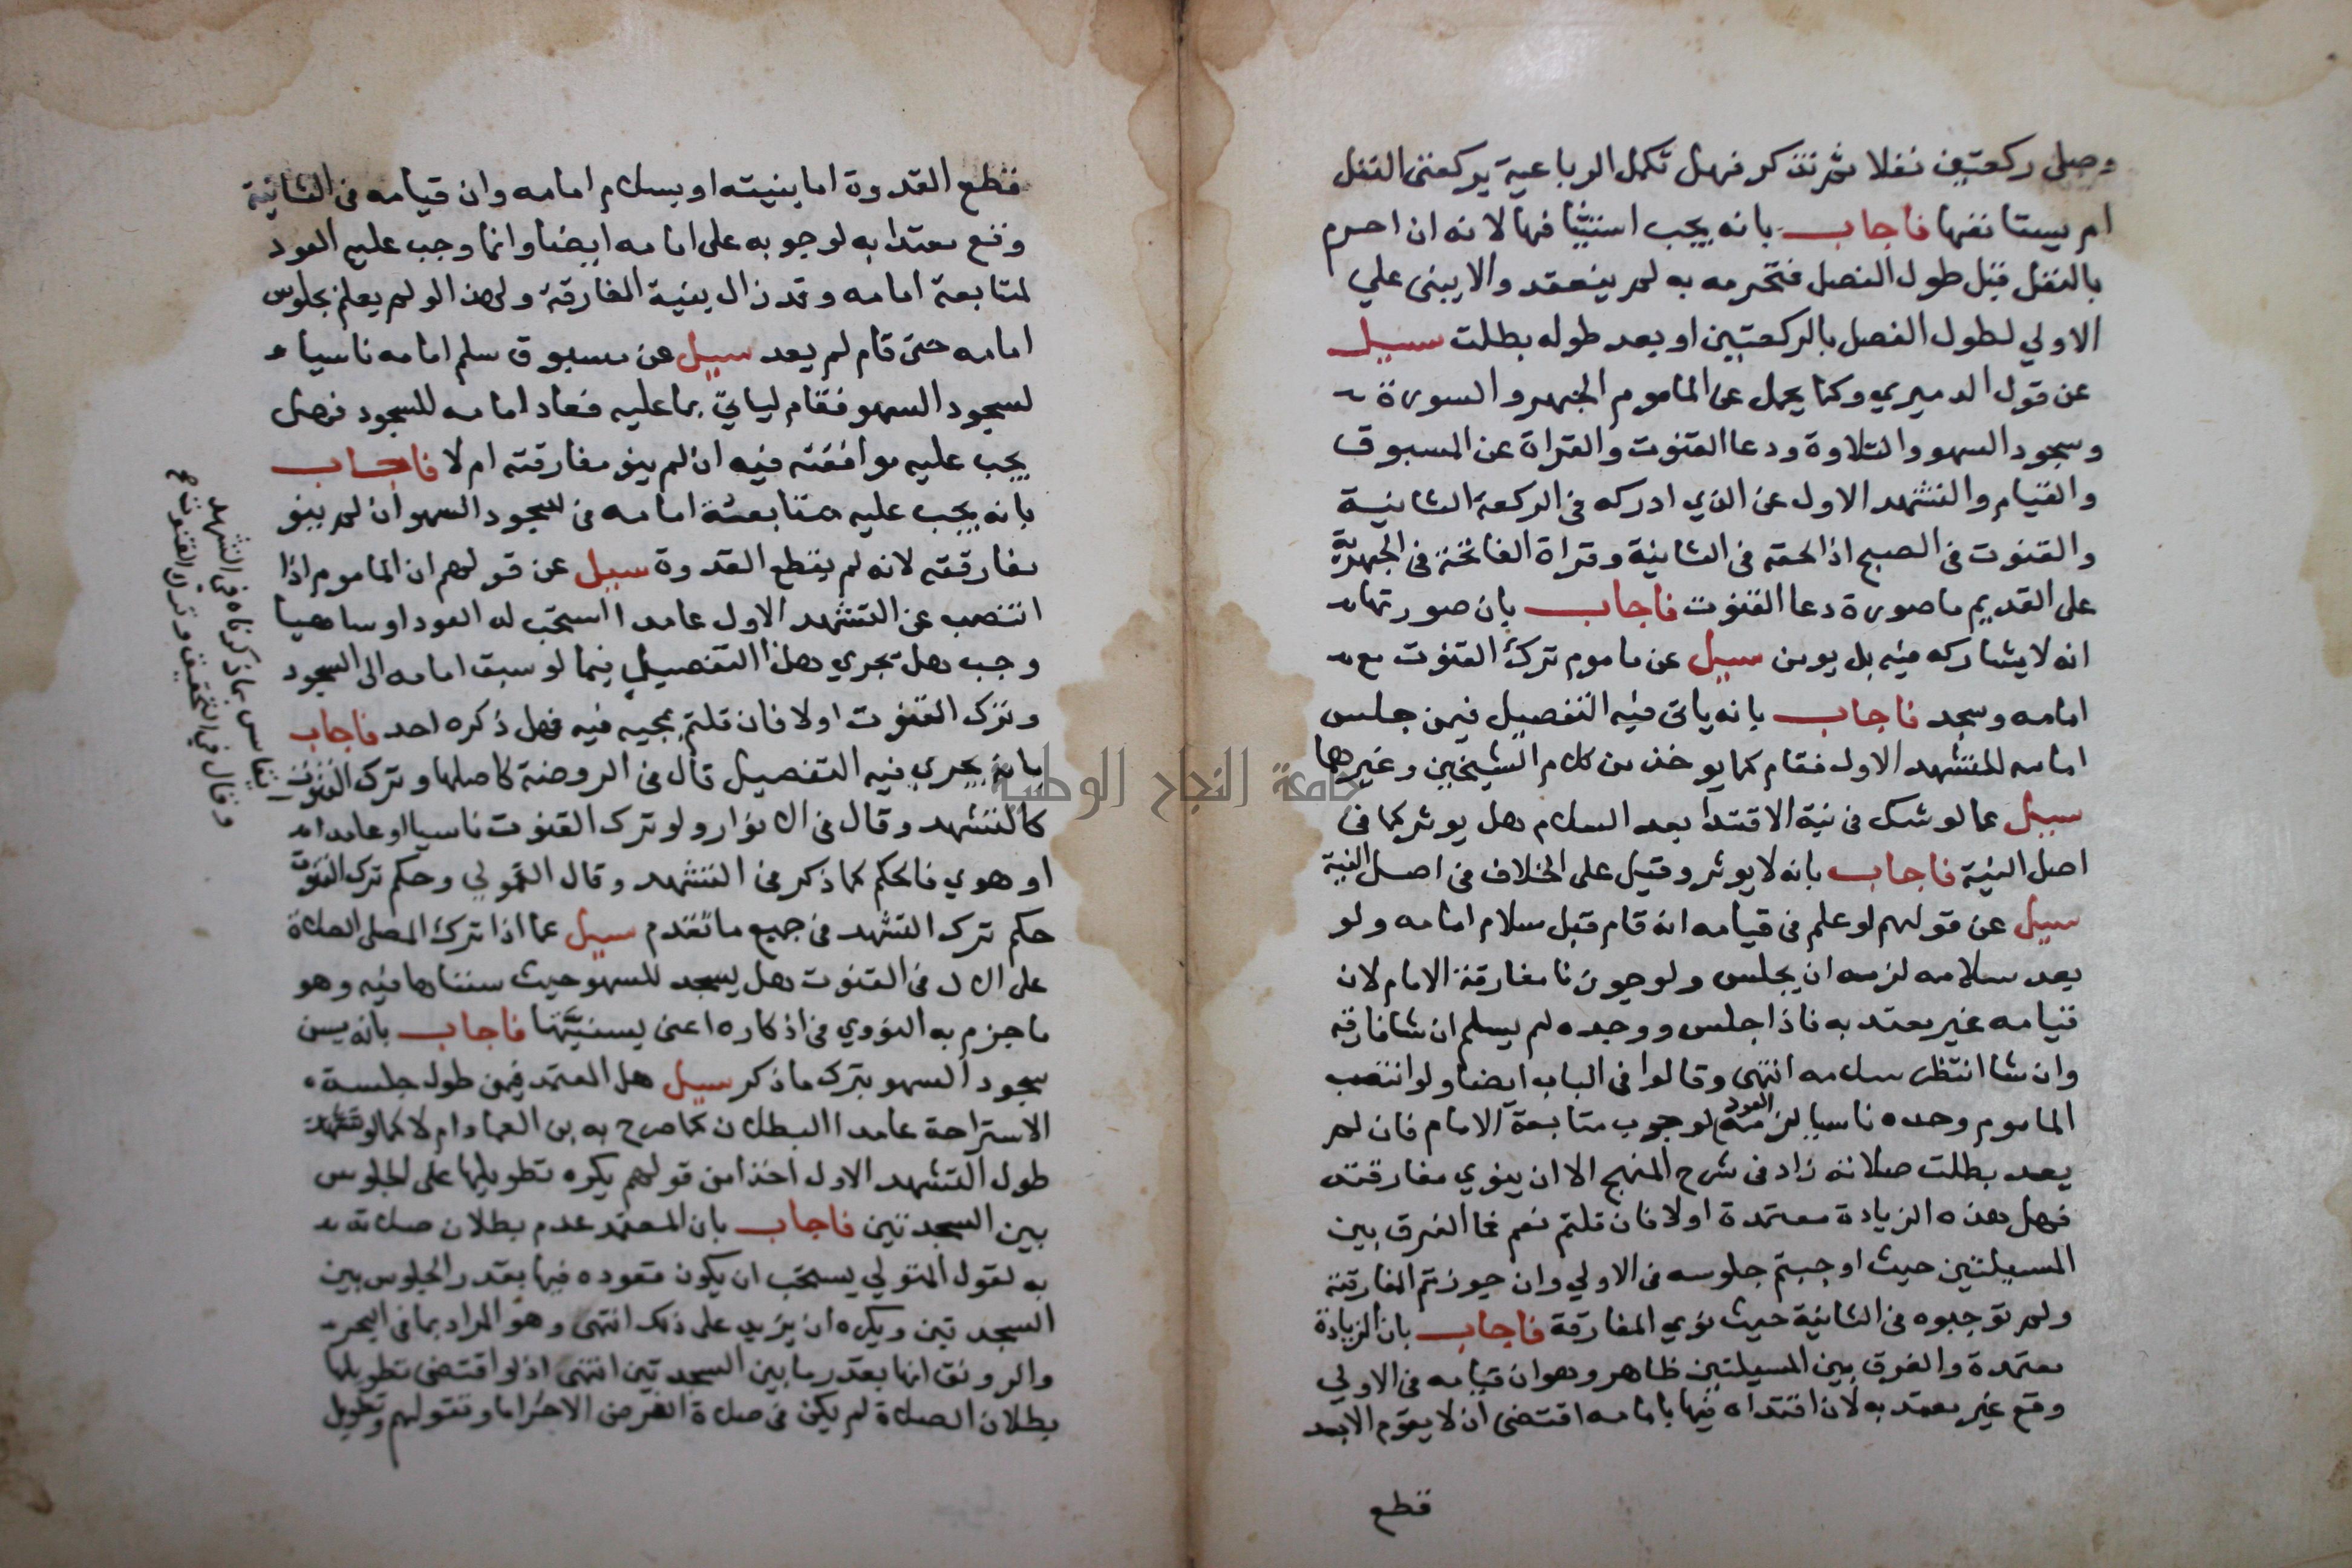 وصلى ركعتين نفلا ثم تذكر فهل تكمل الرباعية بركعتى النفل
ام يستانفها فاجاب بانه يجب استينافها لانه ان احرم
بالنفل قبل طول الفصل فتحرمه به لم ينعقد والا يبنى علي
الاولي لطول الفصل بالركعتين او بعد طوله بطلت سيل
عن قول الدميري وكما يحمل عن الماموم الجهر والسورة
وسجود السهو والتلاوة ودعا القنوت والقراة عن المسبوق
والقيام والتشهد الاول عن الذي ادركه فى الركعة الثانية
والقنوت فى الصبح اذا لحقه فى الثانية وقراة الفاتحة فى الجهرية
على القديم ما صورة دعا القنوت فاجاب بان صورتها
انه لا يشاركه فيه بل يومن سيل عن ماموم ترك القنوت مع
امامه وسجد فاجاب بانه ياتى فيه التفصيل فيمن جلس
امامه للتشهد الاول فقام كما يوخذ من كلام الشيخين وغيرهما
سيل عما لو شك فى نية الاقتدا بعد السلام هل يوثر كما فى
اصل النية فاجاب بانه لا يوثر وقيل على الخلاف فى اصل النية
سيل عن قولهم لو علم فى قيامه انه قام قبل سلام امامه ولو
بعد سلامه لزمه ان يجلس ولو جوزنا مفارقة الامام لان
قيامه غير معتد به فاذا جلس ووجده لم يسلم ان شا فارقه
وان شا انتظر سلامه انتهى وقالوا فى الباب ايضا ولو انتصب
الماموم وحده ناسيا لزمه العود لوجوب متابعة الامام فان لم
يعد بطلت صلاته زاد فى شرح المنهج الا ان ينوي مفارقته
فهل هذه الزيادة معتمدة اولا فان قلتم نعم فما الفرق بين
المسيلتين حيث اوجبتم جلوسه فى الاولي وان جوزتم المفارقة
ولم توجبوه فى الثانية حيث نوي المفارقة فاجاب بان الزيادة
معتمدة والفرق بين المسيلتين ظاهر وهو ان قيامه فى الاولي
وقع غير معتد به لان اقتداه فيها بامامه اقتضى ان لا يقوم الا بعد
قطع
قطع القدوة اما بنيته او بسلام امامه وان قيامه فى الثانية
وقع معتدا به لوجوبه على امامه ايضا وانما وجب عليه العود
لمتابعة امامه وقد زال بنية المفارقة ولهذا لو لم يعلم بجلوس
امامه حتى قام لم يعد سيل عن مسبوق سلم امامه ناسيا
لسجود السهو فقام لياتي بما عليه فعاد امامه للسجود فهل
يجب عليه موافقته فيه ان لم ينو مفارقته ام لا فاجاب
بانه يجب عليه متابعة امامه فى سجود السهو ان لم ينو
مفارقته لانه لم يقطع القدوة سيل عن قولهم ان الماموم اذا
انتصب عن التشهد الاول عامدا استحب له العود او ساهيا
وجب هل يجري هذا التفصيل فيما لو سبق امامه الى السجود
وترك القنوت اولا فان قلتم بمجيه فيه فهل ذكره احد فاجاب
بانه يجري فيه التفصيل قال فى الروضة كاصلها وترك القنوت
كالتشهد وقال فى الانوار ولو ترك القنوت ناسيا او عامدا
او هوي فالحكم كما ذكر فى التشهد وقال القمولي وحكم ترك القنوت
حكم ترك التشهد فى جميع ما تقدم سيل عما اذا ترك المصلى الصلاة
على الال فى القنوت هل يسجد للسهو حيث سنناها فيه وهو
ما جزم به النووي فى اذكاره اعنى بسنيتها فاجاب بانه يسن
سجود السهو بترك ما ذكر سيل هل المعتمد فيمن طول جلسة
الاستراحة عامدا البطلان كما صرح به بن العماد ام لا كما لو
طول التشهد الاول اخذا من قولهم يكره تطويلها على الجلوس
بين السجدتين فاجاب بان المعتمد عدم بطلان صلاته
به لقول المتولي يستحب ان يكون قعوده فيها بقدر الجلوس بين
السجدتين ويكره ان يزيد على ذلك انتهى وهو المراد بما فى البحر
والرونق انها بقدر ما بين السجدتين انتهى اذ لو اقتضى تطويلها
بطلان الصلاة لم يكن فى صلاة الفرض الا حراما وقولهم وتطويل
يقاس بما ذكرناه فى التشهد
وقال فى التحقيق وترك القنوت
جامعة النجاح الوطنية